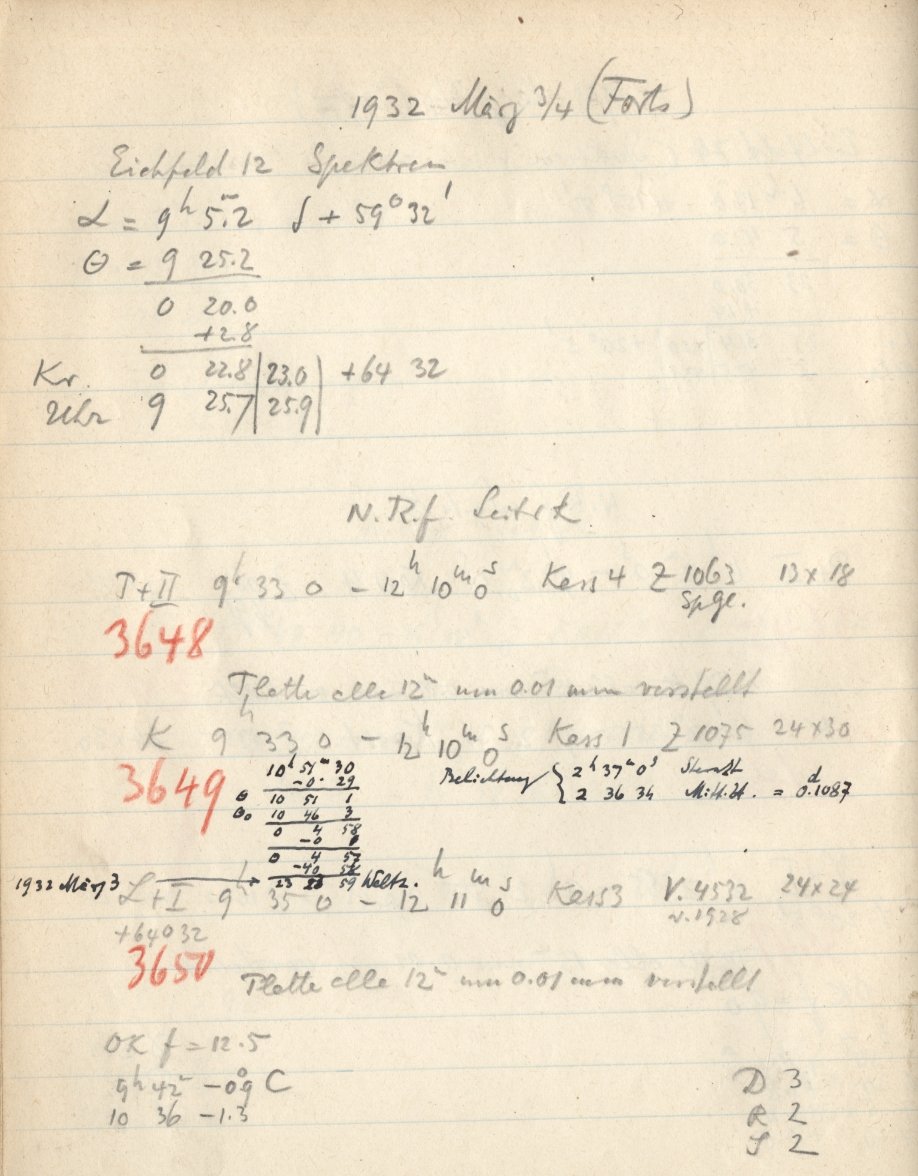 1932 März 3/4 (Forts)
Eichfeld 12 Spektren
α = 9h 5.m2 δ + 59° 32'
Θ = 9 25.2
0 20.0
+2.8
Kr. 0 22.8 | 23.0 | +64 32
Uhr 9 25.7 | 25.9 |
N.R.f.
I+II 9h 33 0 – 12h 10m 0s Kass 4 Z 1063 13x18
Spgl.
3648
Platte alle 12m um 0.01 mm verstellt
K 9h 33 0 – 12h 10m 0s Kass 1 Z 1075 24x30
3649
10h 51m 30
–0. 29
Θ 10 51 1
Θ0 10 46 3
0 4 58
–0 0
0 4 57
–40 58
23 23 59 Weltz.
Belichtung { 2h 37m 0s Sternzt
2 36 34 Mittl.Zt. = 0.d1087
1932 März 3
L+I 9h 35 0 – 12h 11m 0s Kass 3 V. 4532 24x24
+64° 32 v. 1928
3650
Platte alle 12m um 0.01 mm verstellt
OK f = 12.5
9h 42m –0.°9 C
10 36 –1.3
D 3
R 2
S 2